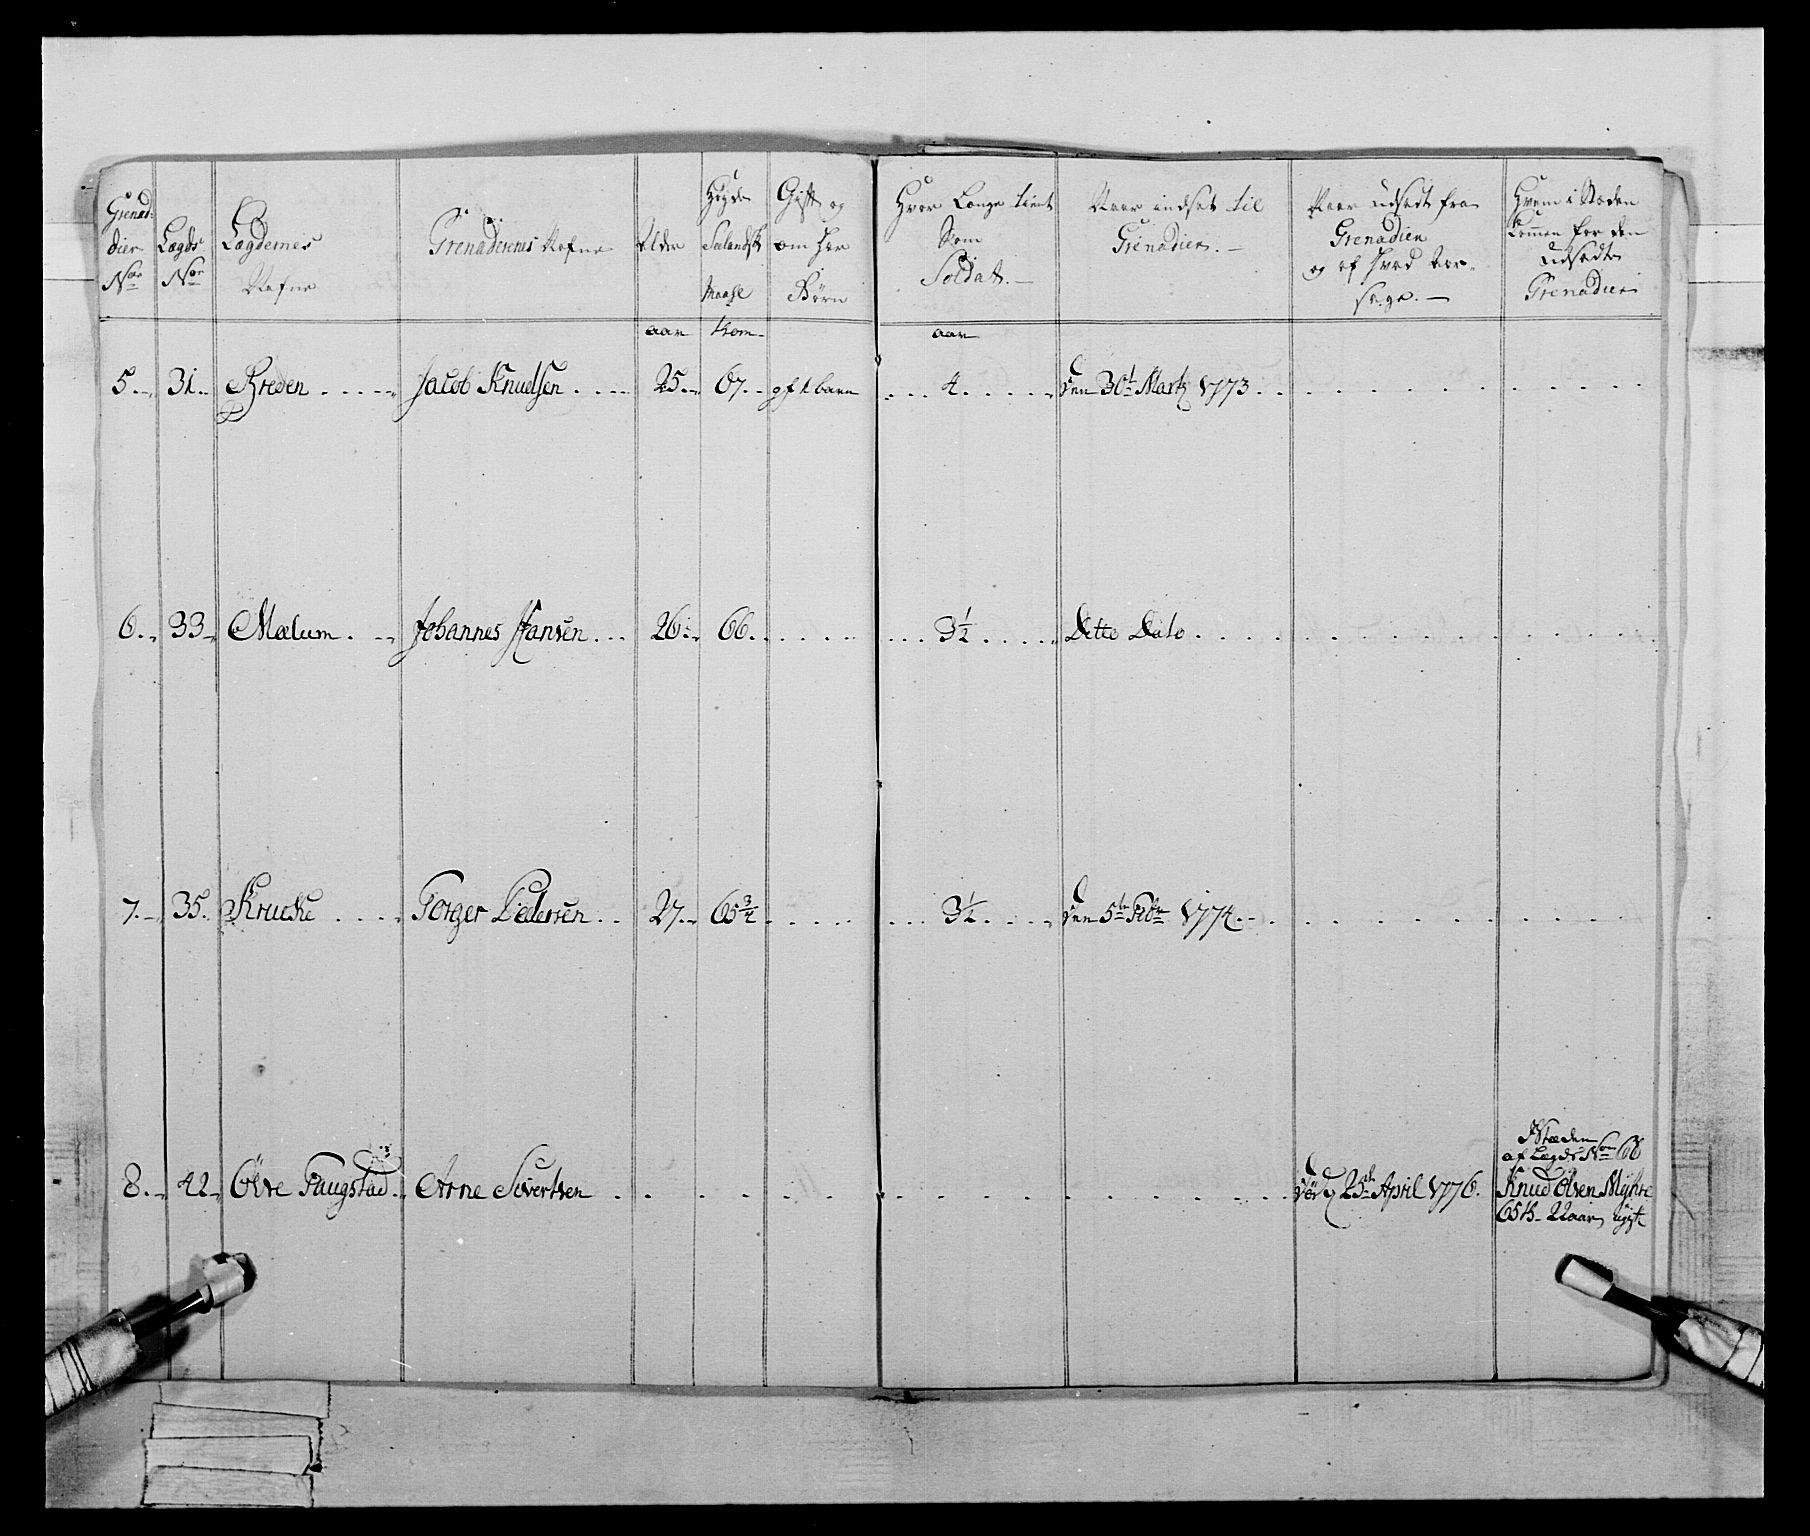 Grenad:
dier
Nor
Lægds
Nor
Lægdernes
Nafne
Grenaderernes Nafne
Alder
Høyde
Seelandsk
Maahl
Gift og
om Har
Børn
Hvor Længe tient
Som
Soldat. —
Naar indsat til
Grenadier. —
Naar udsadt fra
Grenadier
og af Hvad Aar-
sage. —
Hvem i Stæden
kommen for den
udsadte
Grenadier
aar
Tom
aar
5. 31. Breden .... Jacob Knudsen .... 25. 67. gft 1 barn ... 4 .... den 30t Marty 1773 ..
6. 33. Mælum ... Johannes Hansen ... 26. 66 ..... 3½ .... Dette Dato ....
7. 35. Krucke .... Torger Pedersen .. 27. 65¾ .... 3½ .... den 5te Febr 1774 ..
I Stæden
af Lægds Nor 68
8. 42. Øvre Faugstad. Arne Sivertsen ..... død 25de April 1776. Knud Olsen Myhre
65 t. 22 aar, ugift